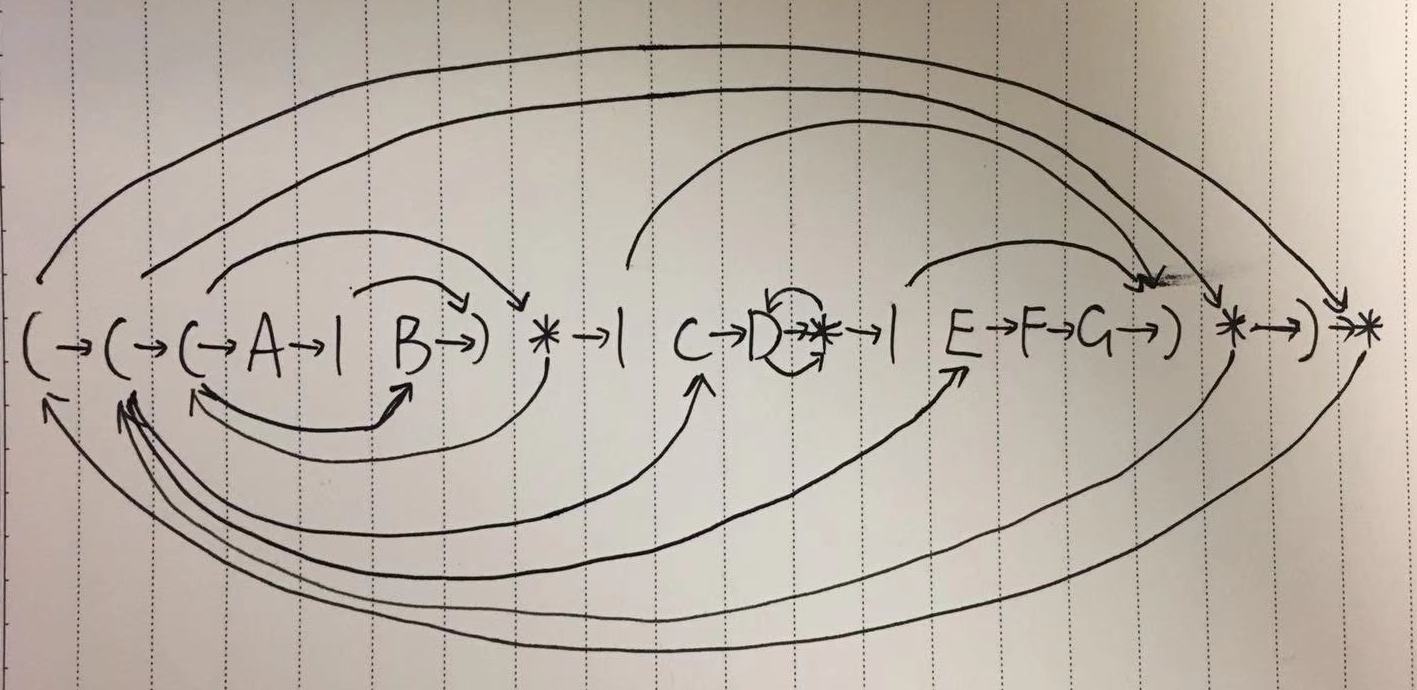 ( → ( → ( → A → | B → ) * → | C → D → * → | E → F → G → ) * → ) → *